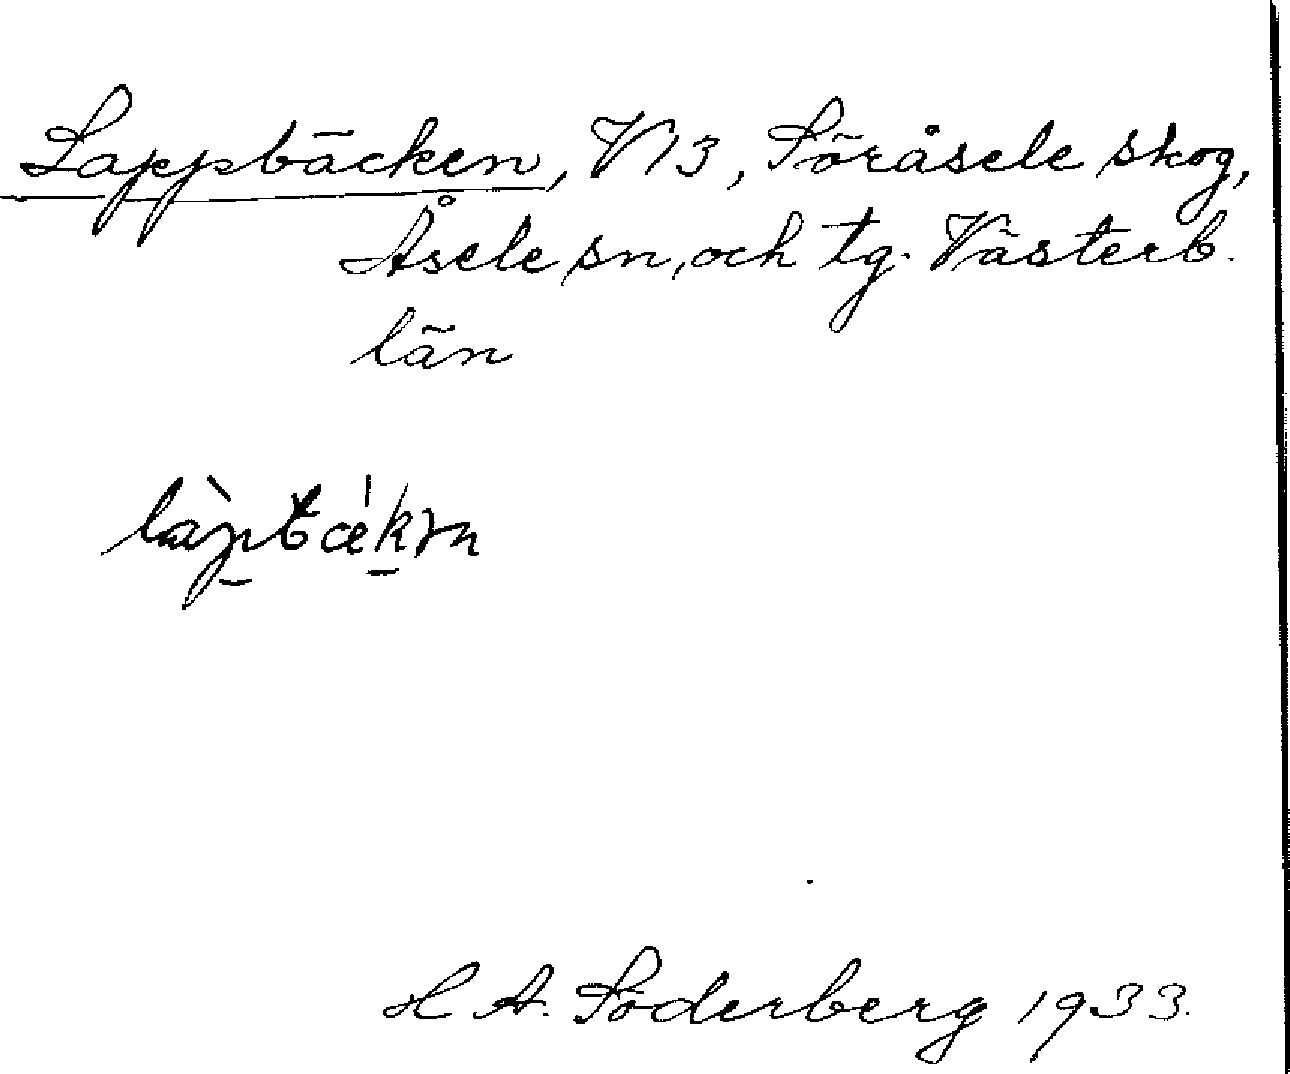 Lappbäcken, V13, Söråsele skog,
Åsele sn, och tg. Västerb.
län
H A. Söderberg 1933.